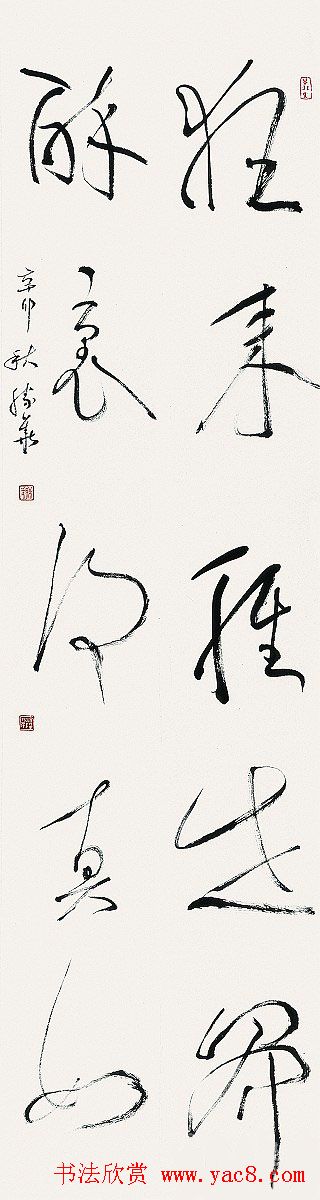 狂来轻世界
醉裏得真如
辛卯秋
书法欣赏 www.yac8.com